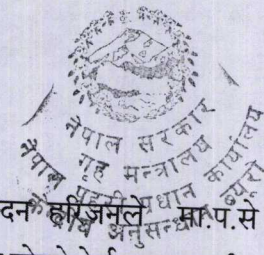 नेपाल सरकार
गृह मन्त्रालय
नेपाल प्रहरी प्रधान कार्यालय
केन्द्रीय अनुसन्धान ब्यूरो
दन हरिजनले मा.प.से